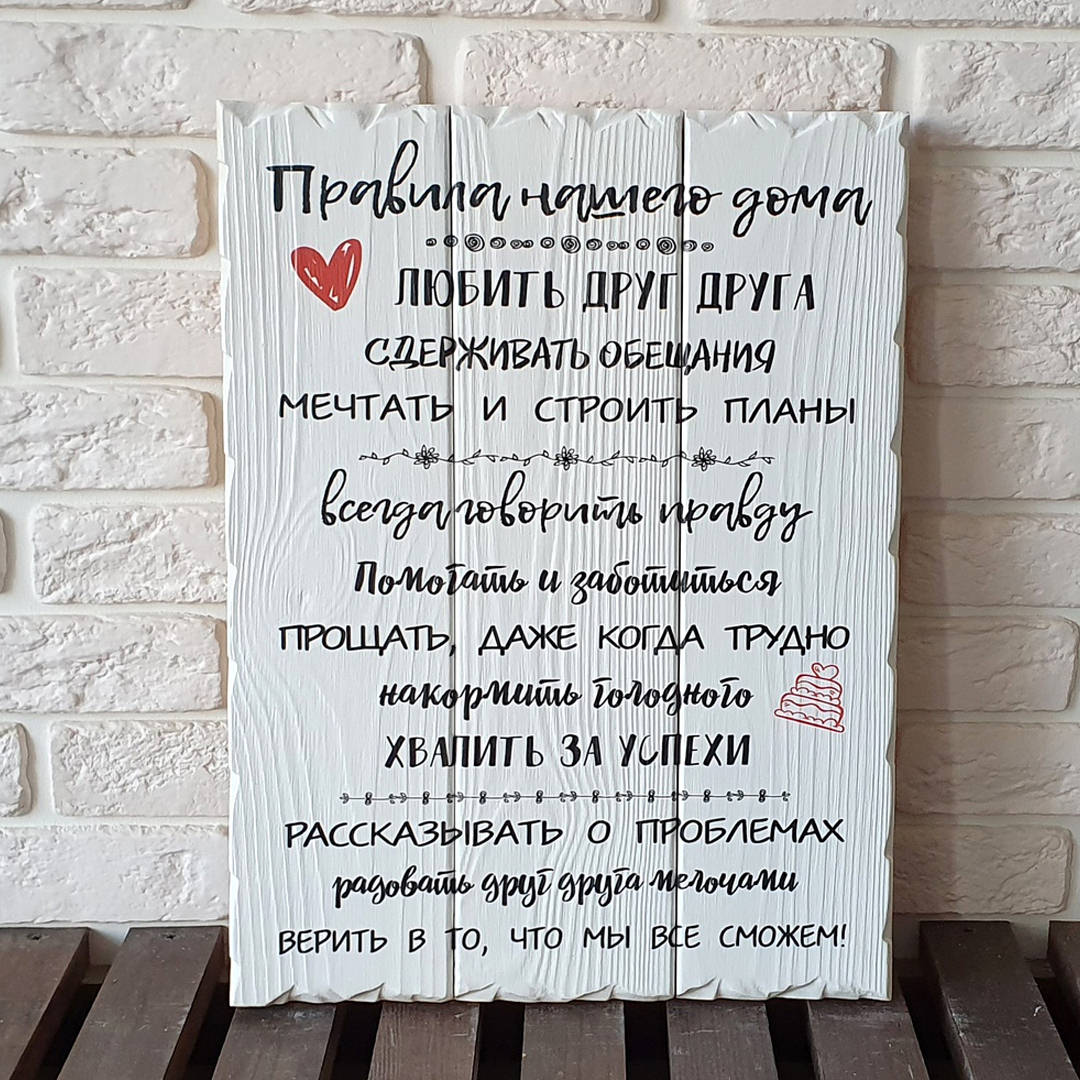 Правила нашего дома
ЛЮБИТЬ ДРУГ ДРУГА
СДЕРЖИВАТЬ ОБЕЩАНИЯ
МЕЧТАТЬ И СТРОИТЬ ПЛАНЫ
всегда говорить правду
Помогать и заботиться
ПРОЩАТЬ, ДАЖЕ КОГДА ТРУДНО
накормить голодного
ХВАЛИТЬ ЗА УСПЕХИ
РАССКАЗЫВАТЬ О ПРОБЛЕМАХ
радовать друг друга мелочами
ВЕРИТЬ В ТО, ЧТО МЫ ВСЕ СМОЖЕМ!